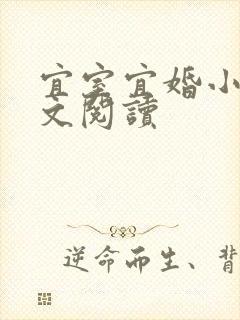 宜室宜婚小
文閱讀
逆命而生、背